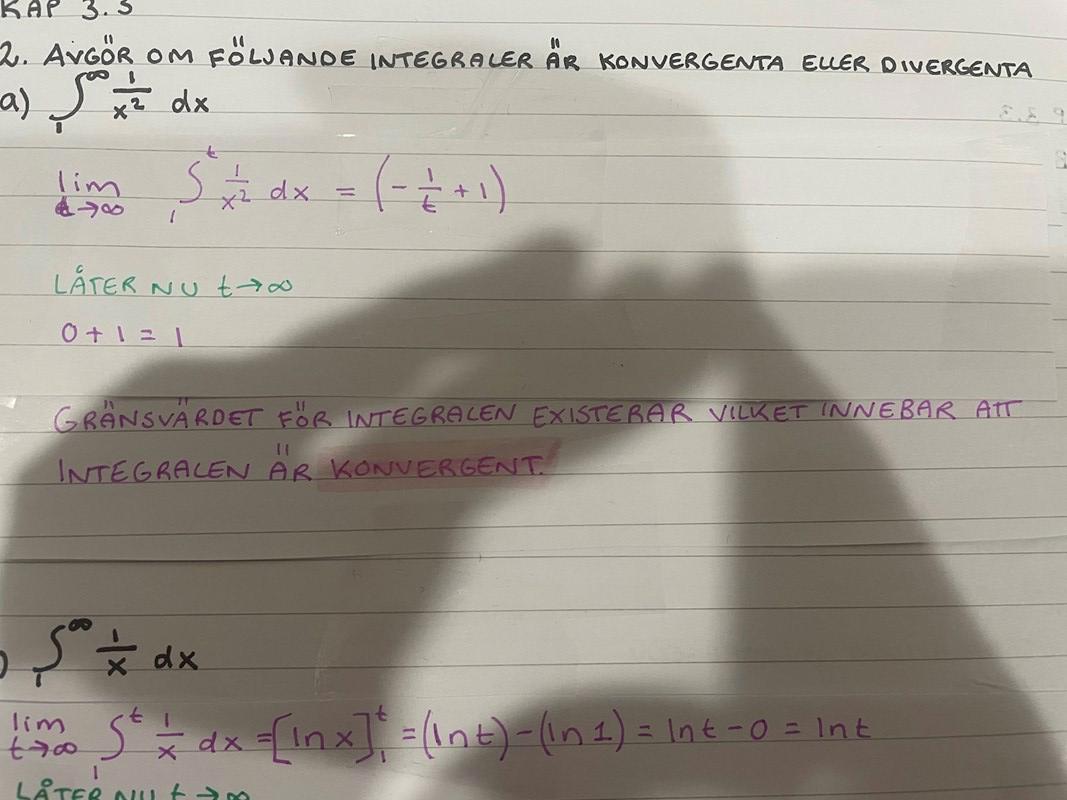 KAP 3.3
2. AVGÖR OM FÖLJANDE INTEGRALER ÄR KONVERGENTA ELLER DIVERGENTA
a) ∫₁^∞ 1/x² dx
lim t→∞ ∫₁^t 1/x² dx = (-1/t + 1)
LÅTER NU t→∞
0+1 = 1
GRÄNSVÄRDET FÖR INTEGRALEN EXISTERAR VILKET INNEBAR ATT
INTEGRALEN ÄR KONVERGENT.
) ∫₁^∞ 1/x dx
lim t→∞ ∫₁^t 1/x dx = [ln x]₁^t = (ln t) - (ln 1) = ln t - 0 = ln t
LÅTER NU t→∞